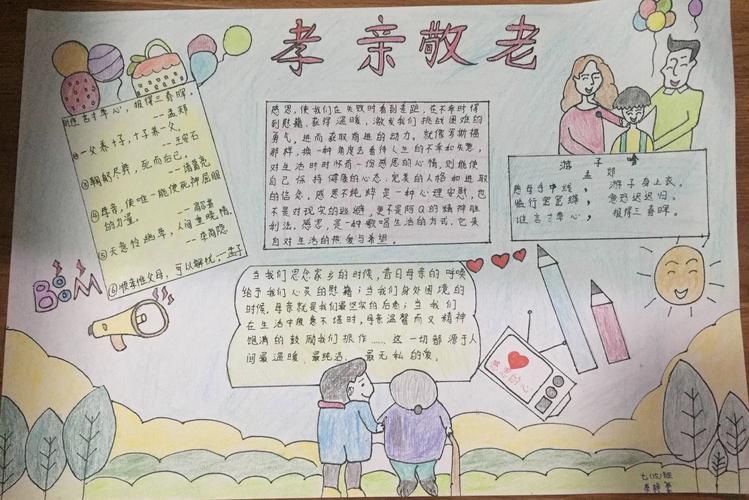 孝亲敬老
谁言寸草心，报得三春晖。
--孟郊
一父养十子，十子养一父。
--
③鞠躬尽瘁，死而后已。
--诸葛亮
④母亲，使唯一能使死神屈服
的力量。
--
⑤天意怜幽草，人间重晚晴。
--李商隐
⑥惟孝顺父母，可以解忧。--孟子
BOOM
感恩，使我们在失败时看到差距，在不幸时得
到慰籍、获得温暖，激发我们挑战困难的
勇气，进而获取前进的动力。就像罗斯福
那样，换一种角度去看待人生的不幸和失意，
对生活时时怀有一份感恩的心情，则能使
自己保持健康的心态、完美的人格和进取
的信念。感恩不纯粹是一种心理安慰，也
不是对现实的逃避，更不是阿Q的精神胜
利法。感恩，是一种歌唱生活的方式，它来
自对生活的热爱与希望。
游子吟
孟郊
慈母手中线，游子身上衣。
临行密密缝，意恐迟迟归。
谁言寸草心，报得三春晖。
当我们思念家乡的时候，昔日母亲的呼唤
给予我们心灵的慰籍；当我们身处困境的
时候，母亲就是我们最坚实的后盾；当我们
在生活中疲惫不堪时，母亲温馨而又精神
饱满的鼓励我们振作……这一切都源于人
间最温暖、最纯洁、最无私的爱。
感恩的心
七(15)班